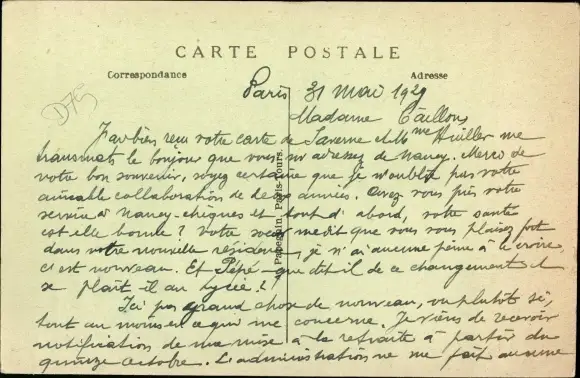 CARTE POSTALE
Correspondance
Adresse
D75
Paris 31 mai 1929
Madame Taillons
J'ai bien reçu votre carte de Saverne et Mme Huiller me
transmet le bonjour que vous m'adressez de Nancy. Merci de
votre bon souvenir, soyez certaine que je n'oublie pas votre
aimable collaboration de années. Avez vous pris votre
service à Nancy-chèques et tout d'abord, votre santé
est elle bonne? Votre sœur me dit que vous vous plaisez fort
dans votre nouvelle résidence, je n'ai aucune peine à le croire,
c'est nouveau. Et Pépé que dit il de ce changement et
se plaît il au lycée?
Ici pas grand chose de nouveau, ou plutôt si,
tout au moins en ce qui me concerne. Je viens de recevoir
notification de ma mise à la retraite à partir du
quinze octobre. L'administration ne me fait aucune
A. Papeghin, Paris-Tours.